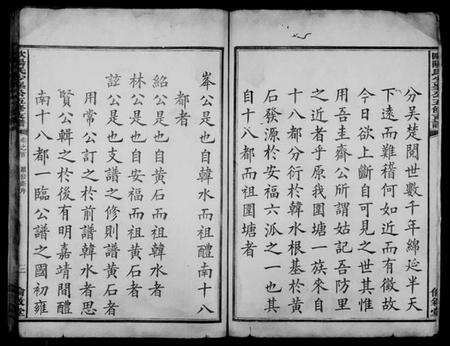 分吳楚閱世數千年綿延半天
下遠而難稽何如近而有徵故
今日欲上斷自可見之世其惟
用吾圭齋公所謂姑記吾防里
之近者乎原我圍塘一族來自
十八都分衍於韓水根基於黄
石發源於安福六派之一也其
南十八都而祖圍塘者
峯公是也自韓水而祖醴南十八
都者
紹公是也自黄石而祖韓水者
林公是也自安福而祖黄石者
諠公是也支譜之修則譜黄石者
用常公訂之於前譜韓水者思
賢公輯之於後有明嘉靖間醴
南十八都一臨公譜之國初雍